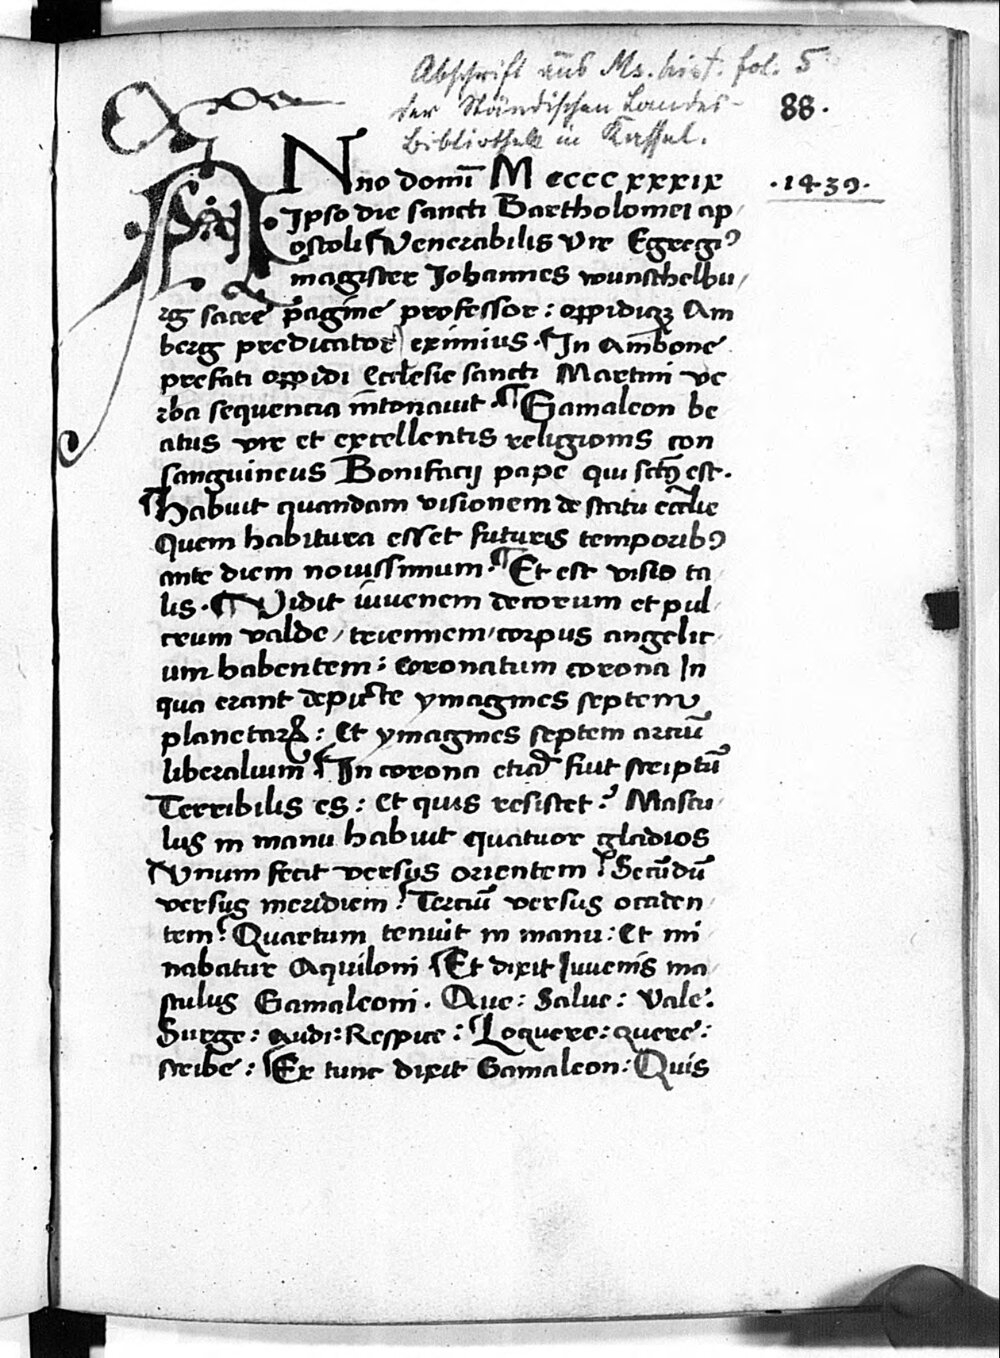 Abschrift aus Ms. hist. fol. 5
der Ständischen Landes-
bibliothek in Kassel.
88.
ANno domī M cccc xxxix
·1439·
Ipso die sancti Bartholomei ap
ostoli Venerabilis vir Egregiꝰ
magister Johannes wunschelbu
rg sacre pagine professor : oppidiqꝫ Am
berg predicator eximius · In Ambone
prefati oppidi Ecclesie sancti Martini ve
rba sequencia intonauit · ¶ Gamaleon be
atus vir et excellentis religionis con
sanguineus Bonifacij pape qui sctus est.
¶ habuit quandam visionem de statu ecclie
Quem habitura esset futuris temporibꝰ
ante diem nouissimum · ¶ Et est visio ta
lis · ¶ Vidit iuuenem decorum et pul
crum valde / triennem / corpus angelic
um habentem : Coronatum corona In
qua erant depicte ymagines septem
planetarꝝ : Et ymagines septem arciū
liberalium ¶ In corona etiā fuit scriptū
Terribilis es : Et quis resistet ? Mascu
lus in manu habuit quatuor gladios
Vnum fecit versus orientem ? Secūdū
versus meridiem ? Terciū versus occiden
tem ? Quartum tenuit in manu : Et mi
nabatur Aquiloni ¶ Et dixit Iuuenis ma
sculus Gamaleoni . Aue : Salue : Vale :
Surge : Audi : Respice : Loquere : quere :
scribe : ¶ Ex tunc dixit Gamaleon : Quis